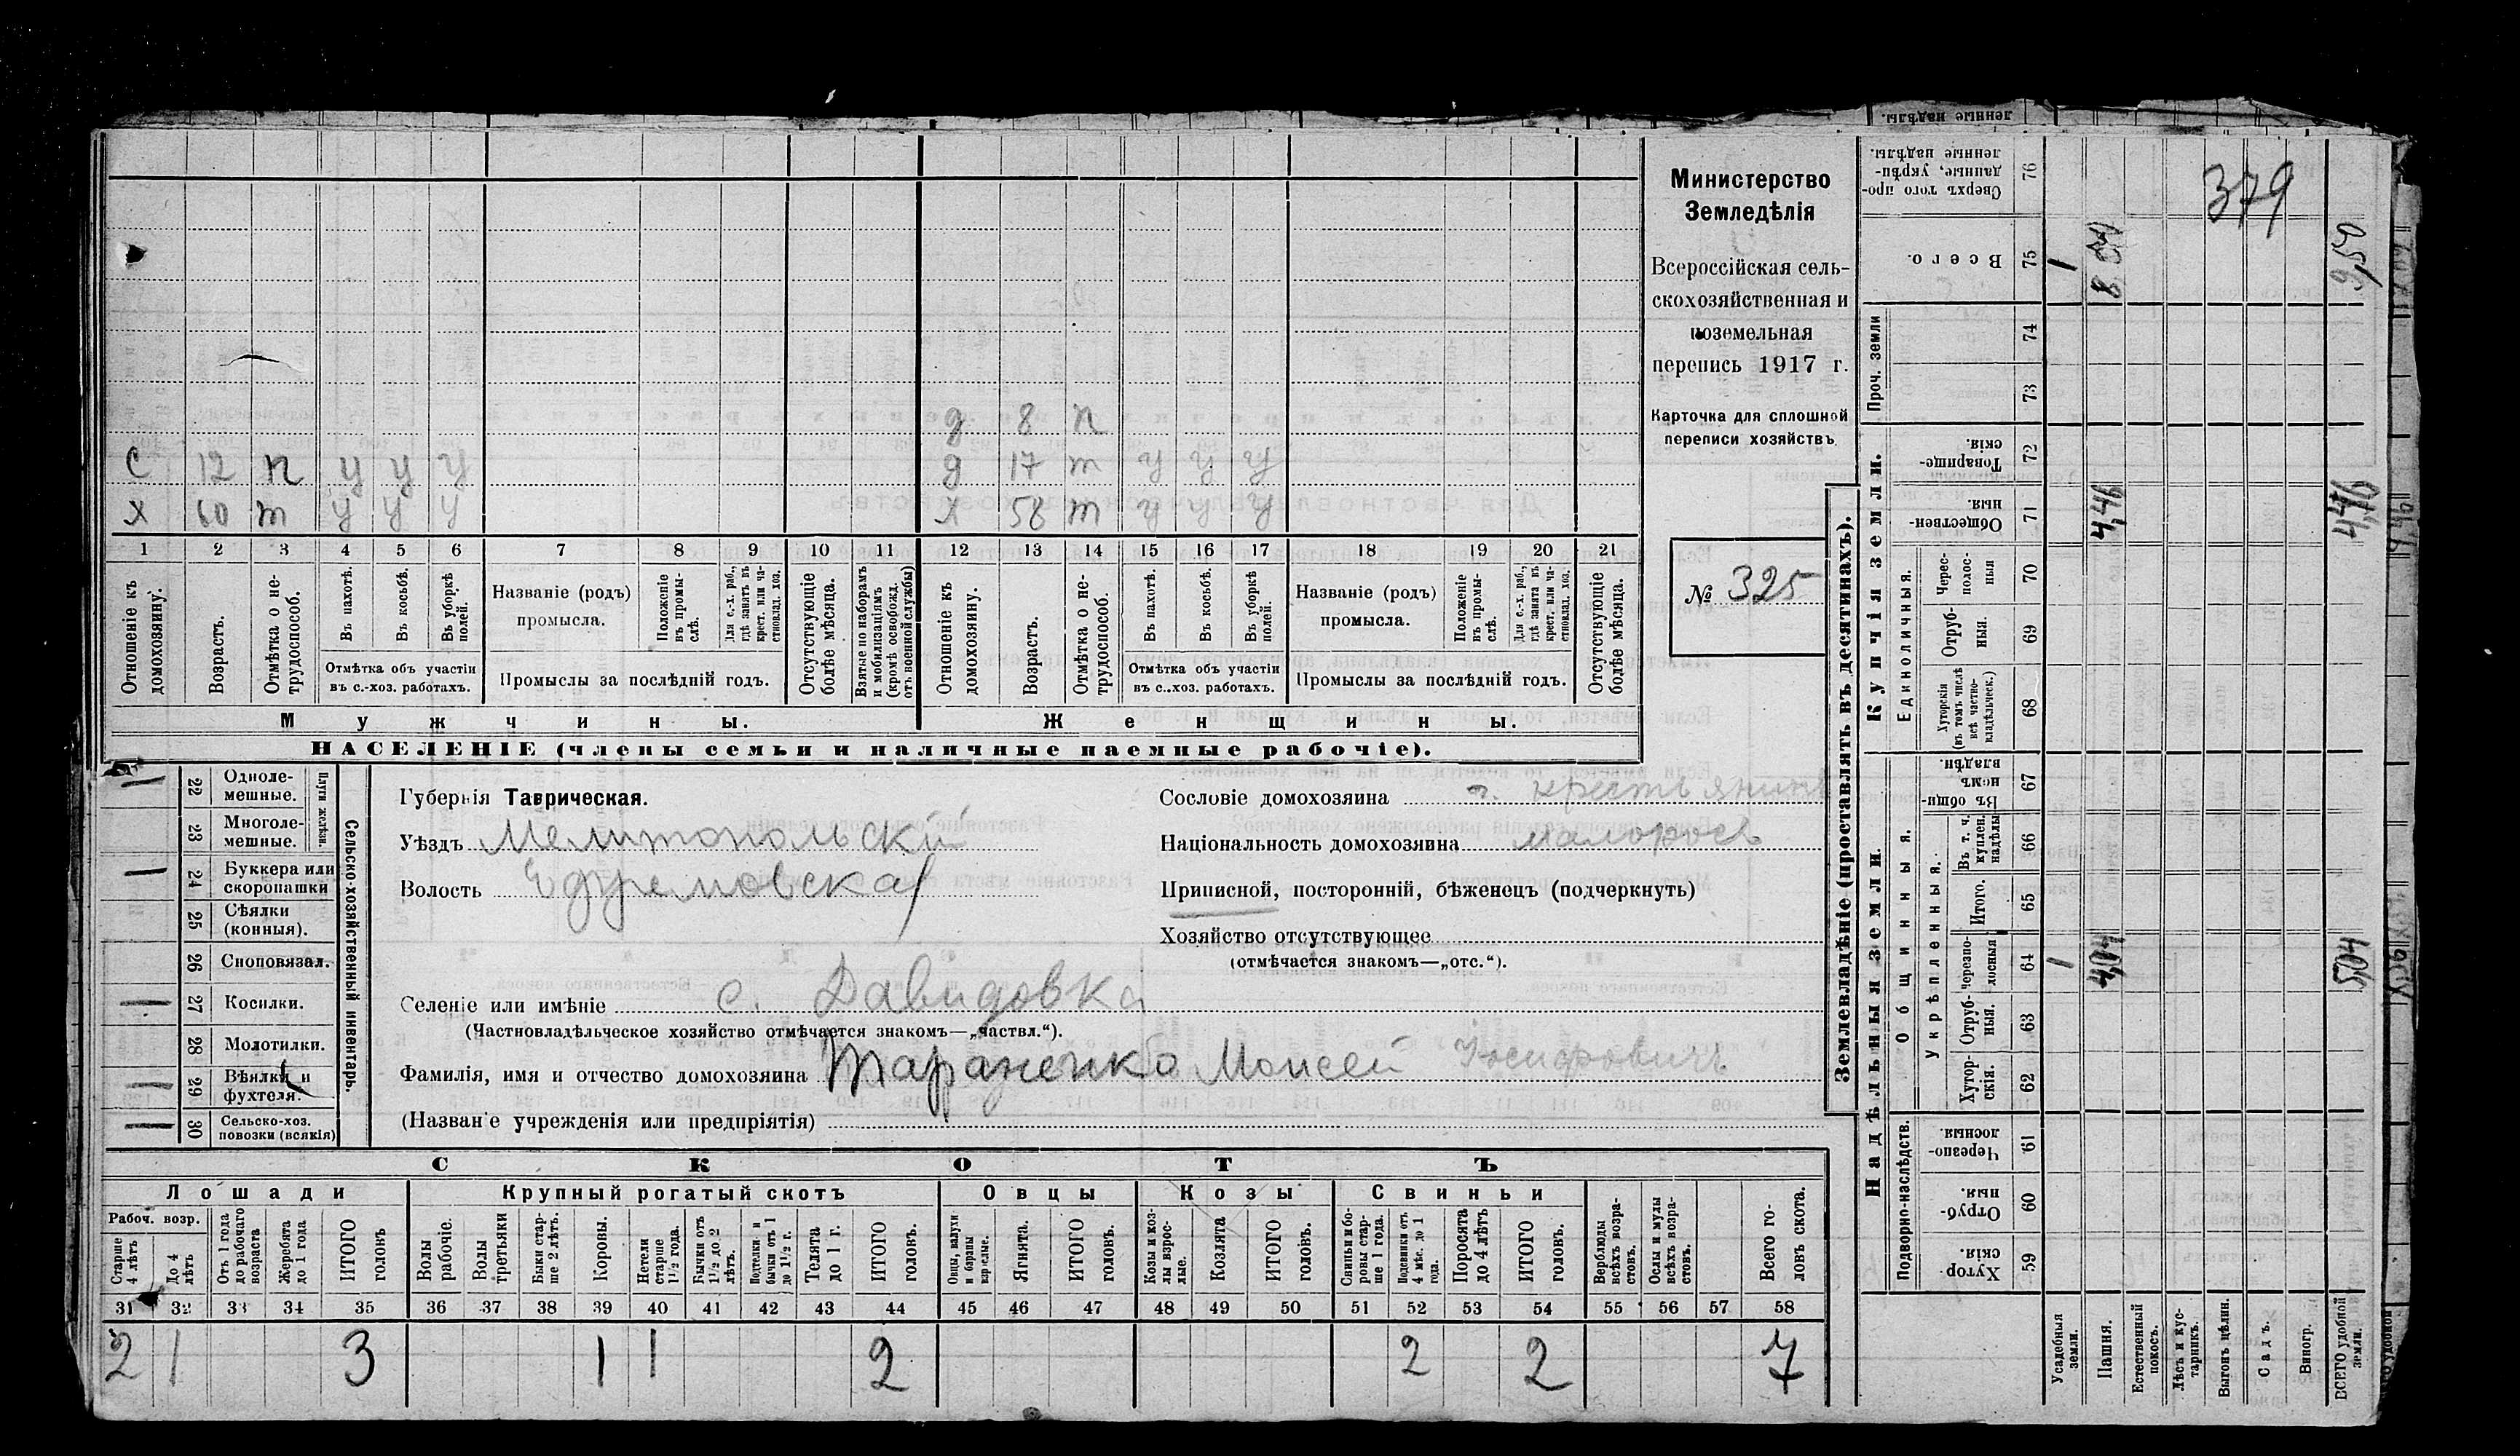 д 8 п
С 12 п у у у д 17 т у у у
Х 60 т у у у Х 58 т у у у
1 2 3 4 5 6 7 8 9 10 11 12 13 14 15 16 17 18 19 20 21
Отношеніе къ домохозяину.
Возрастъ.
Отмѣтка о нетрудоспособ.
Въ пахотѣ.
Въ косьбѣ.
Въ уборкѣ полей.
Отмѣтка объ участіи
въ с.-хоз. работахъ.
Названіе (родъ)
промысла.
Положеніе въ промыслѣ.
Для с.-х. раб., гдѣ занятъ въ крест. или частновлад. хоз.
Промыслы за послѣдній годъ.
Отсутствующіе болѣе мѣсяца.
Взятые по наборамъ и мобилизаціямъ (кромѣ освобожд. отъ военной службы)
Отношеніе къ домохозяину.
Возрастъ.
Отмѣтка о нетрудоспособ.
Въ пахотѣ.
Въ косьбѣ.
Въ уборкѣ полей.
Отмѣтка объ участіи
въ с.-хоз. работахъ.
Названіе (родъ)
промысла.
Положеніе въ промыслѣ.
Для с.-х. раб., гдѣ занята въ крест. или частновлад. хоз.
Промыслы за послѣдній годъ.
Отсутствующіе болѣе мѣсяца.
Мужчины. Женщины.
НАСЕЛЕНІЕ (члены семьи и наличные наемные рабочіе).
Министерство
Земледѣлія
Всероссійская сель-
скохозяйственная и
поземельная
перепись 1917 г.
Карточка для сплошной
переписи хозяйствъ
№ 325
Сельско-хозяйственный инвентарь.
Плуги желѣзн.
22 Одноле-
мешные.
23 Многоле-
мешные.
24 Буккера или
скоропашки
25 Сѣялки
(конныя).
26 Сноповязал.
27 Косилки.
28 Молотилки.
29 Вѣялки и
фухтеля.
30 Сельско-хоз.
повозки (всякія)
Губернія Таврическая.
Уѣздъ Мелитопольскій
Волость Ефремовская
Селеніе или имѣніе с. Давидовка
(Частновладѣльческое хозяйство отмѣчается знакомъ—„частвл.“).
Фамилія, имя и отчество домохозяина Тараненко Моисей Іосифовичъ
(Названіе учрежденія или предпріятія)
Сословіе домохозяина крестьянинъ
Національность домохозяина малороссъ
Приписной, посторонній, бѣженецъ (подчеркнуть)
Хозяйство отсутствующее
(отмѣчается знакомъ—„отс.“).
СКОТЪ
Лошади Крупный рогатый скотъ Овцы Козы Свиньи
Рабоч. возр.
Старше 4 лѣтъ
До 4 лѣтъ
Отъ 1 года до рабочаго возраста
Жеребята до 1 года
ИТОГО головъ
Волы рабочіе.
Волы третьяки
Быки старше 2 лѣтъ.
Коровы.
Нетели старше 1½ года.
Бычки отъ 1½ до 2 лѣтъ.
Подтелки и бычки отъ 1 до 1½ г.
Телята до 1 г.
ИТОГО головъ.
Овцы, валухи и бараны взрослые.
Ягнята.
ИТОГО головъ.
Козы и козлы взрослые.
Козлята
ИТОГО головъ.
Свиньи и боровы старше 1 года.
Подсвинки отъ 4 мѣс. до 1 года.
Поросята до 4 лѣтъ
ИТОГО головъ.
Верблюды всѣхъ возрастовъ.
Ослы и мулы всѣхъ возрастовъ.
Всего головъ скота.
31 32 33 34 35 36 37 38 39 40 41 42 43 44 45 46 47 48 49 50 51 52 53 54 55 56 57 58
2 1 3 1 1 2 2 2 7
Землевладѣніе (проставлять въ десятинахъ).
Купчія земли.
Надѣльныя земли.
Сверхъ того проданные, укрѣпленные надѣлы. 76
379
Всего. 75 1 9,50
Проч. земли 74
73
Товарищескія. 72
Общественныя. 71 4,46 4,46
Единоличныя.
Чересполосныя 70
Отрубныя. 69
Хуторскія (въ томъ числѣ всѣ частновладѣльческ.) 68
Общинныя.
Въ общинномъ владѣн. 67
Укрѣпленныя.
Въ т. ч. куплен. надѣлы 66
Итого. 65
Черезполосныя 64 1 4,04 5,04
Отрубныя. 63
Хуторскія. 62
Подворно-наслѣдств.
Черезполосныя. 61
Отрубныя. 60
Хуторскія. 59
Усадебныя земли.
Пашня.
Естественный покосъ.
Лѣсъ и кустарникъ.
Выгонъ цѣлин.
Садъ.
Виногр.
ВСЕГО удобной земли.